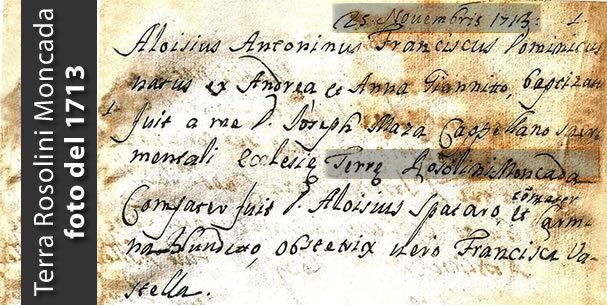 Terra Rosolini Moncada
foto del 1713
25 Novembris 1713:
1.
Aloisius Antoninus Franciscus Dominicus
natus ex Andrea et Anna Giannito, baptizatus
1.
fuit a me D. Joseph Maza Cappellano sacra
mentali Ecclesię Terrę Rosolini Moncada
Compater fuit D. Aloisius Spataro, et
comater
Carme
na Hundito, obstetrix vero Francisca Va
stella.